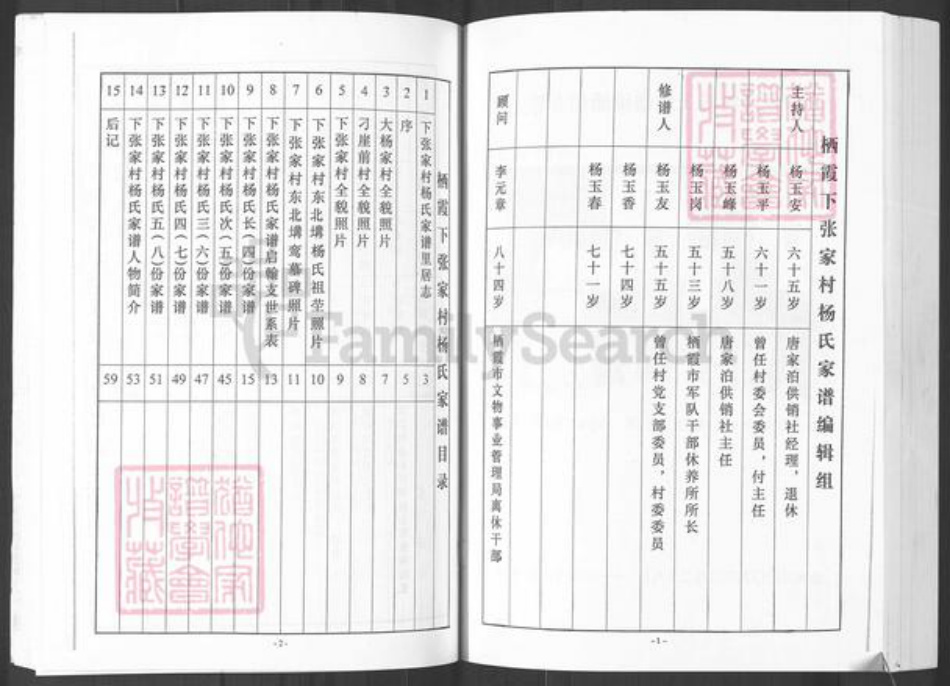 栖霞下张家村杨氏家谱编辑组
主持人 杨玉安 六十五岁 唐家泊供销社经理，退休
杨玉平 六十一岁 曾任村委会委员，付主任
杨玉峰 五十八岁 唐家泊供销社主任
杨玉岗 五十三岁 栖霞市军队干部休养所所长
修谱人 杨玉友 五十五岁 曾任村党支部委员，村委委员
杨玉香 七十四岁
杨玉春 七十一岁
顾问 李元章 八十四岁 栖霞市文物事业管理局离休干部
-1-
栖霞下张家村杨氏家谱目录
1 下张家村杨氏家谱里居志 3
2 序 5
3 大杨家村全貌照片 7
4 刁崖前村全貌照片 8
5 下张家村全貌照片 9
6 下张家村东北墈杨氏祖茔照片 10
7 下张家村东北墈鸾墓碑照片 11
8 下张家村杨氏家谱启翰支世系表 13
9 下张家村杨氏长(四)份家谱 15
10 下张家村杨氏次(五)份家谱 45
11 下张家村杨氏三(六)份家谱 47
12 下张家村杨氏四(七)份家谱 49
13 下张家村杨氏五(八)份家谱 51
14 下张家村杨氏家谱人物简介 53
15 后记 59
-2-
FamilySearch